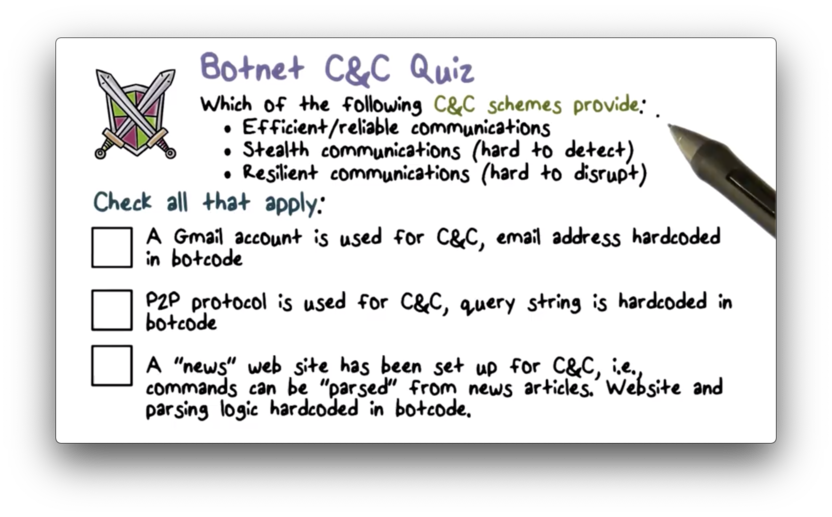 Botnet C&C Quiz
Which of the following C&C schemes provide:
• Efficient/reliable communications
• Stealth communications (hard to detect)
• Resilient communications (hard to disrupt)
Check all that apply:
A Gmail account is used for C&C, email address hardcoded
in botcode
P2P protocol is used for C&C, query string is hardcoded in
botcode
A "news" web site has been set up for C&C, i.e.,
commands can be "parsed" from news articles. Website and
parsing logic hardcoded in botcode.